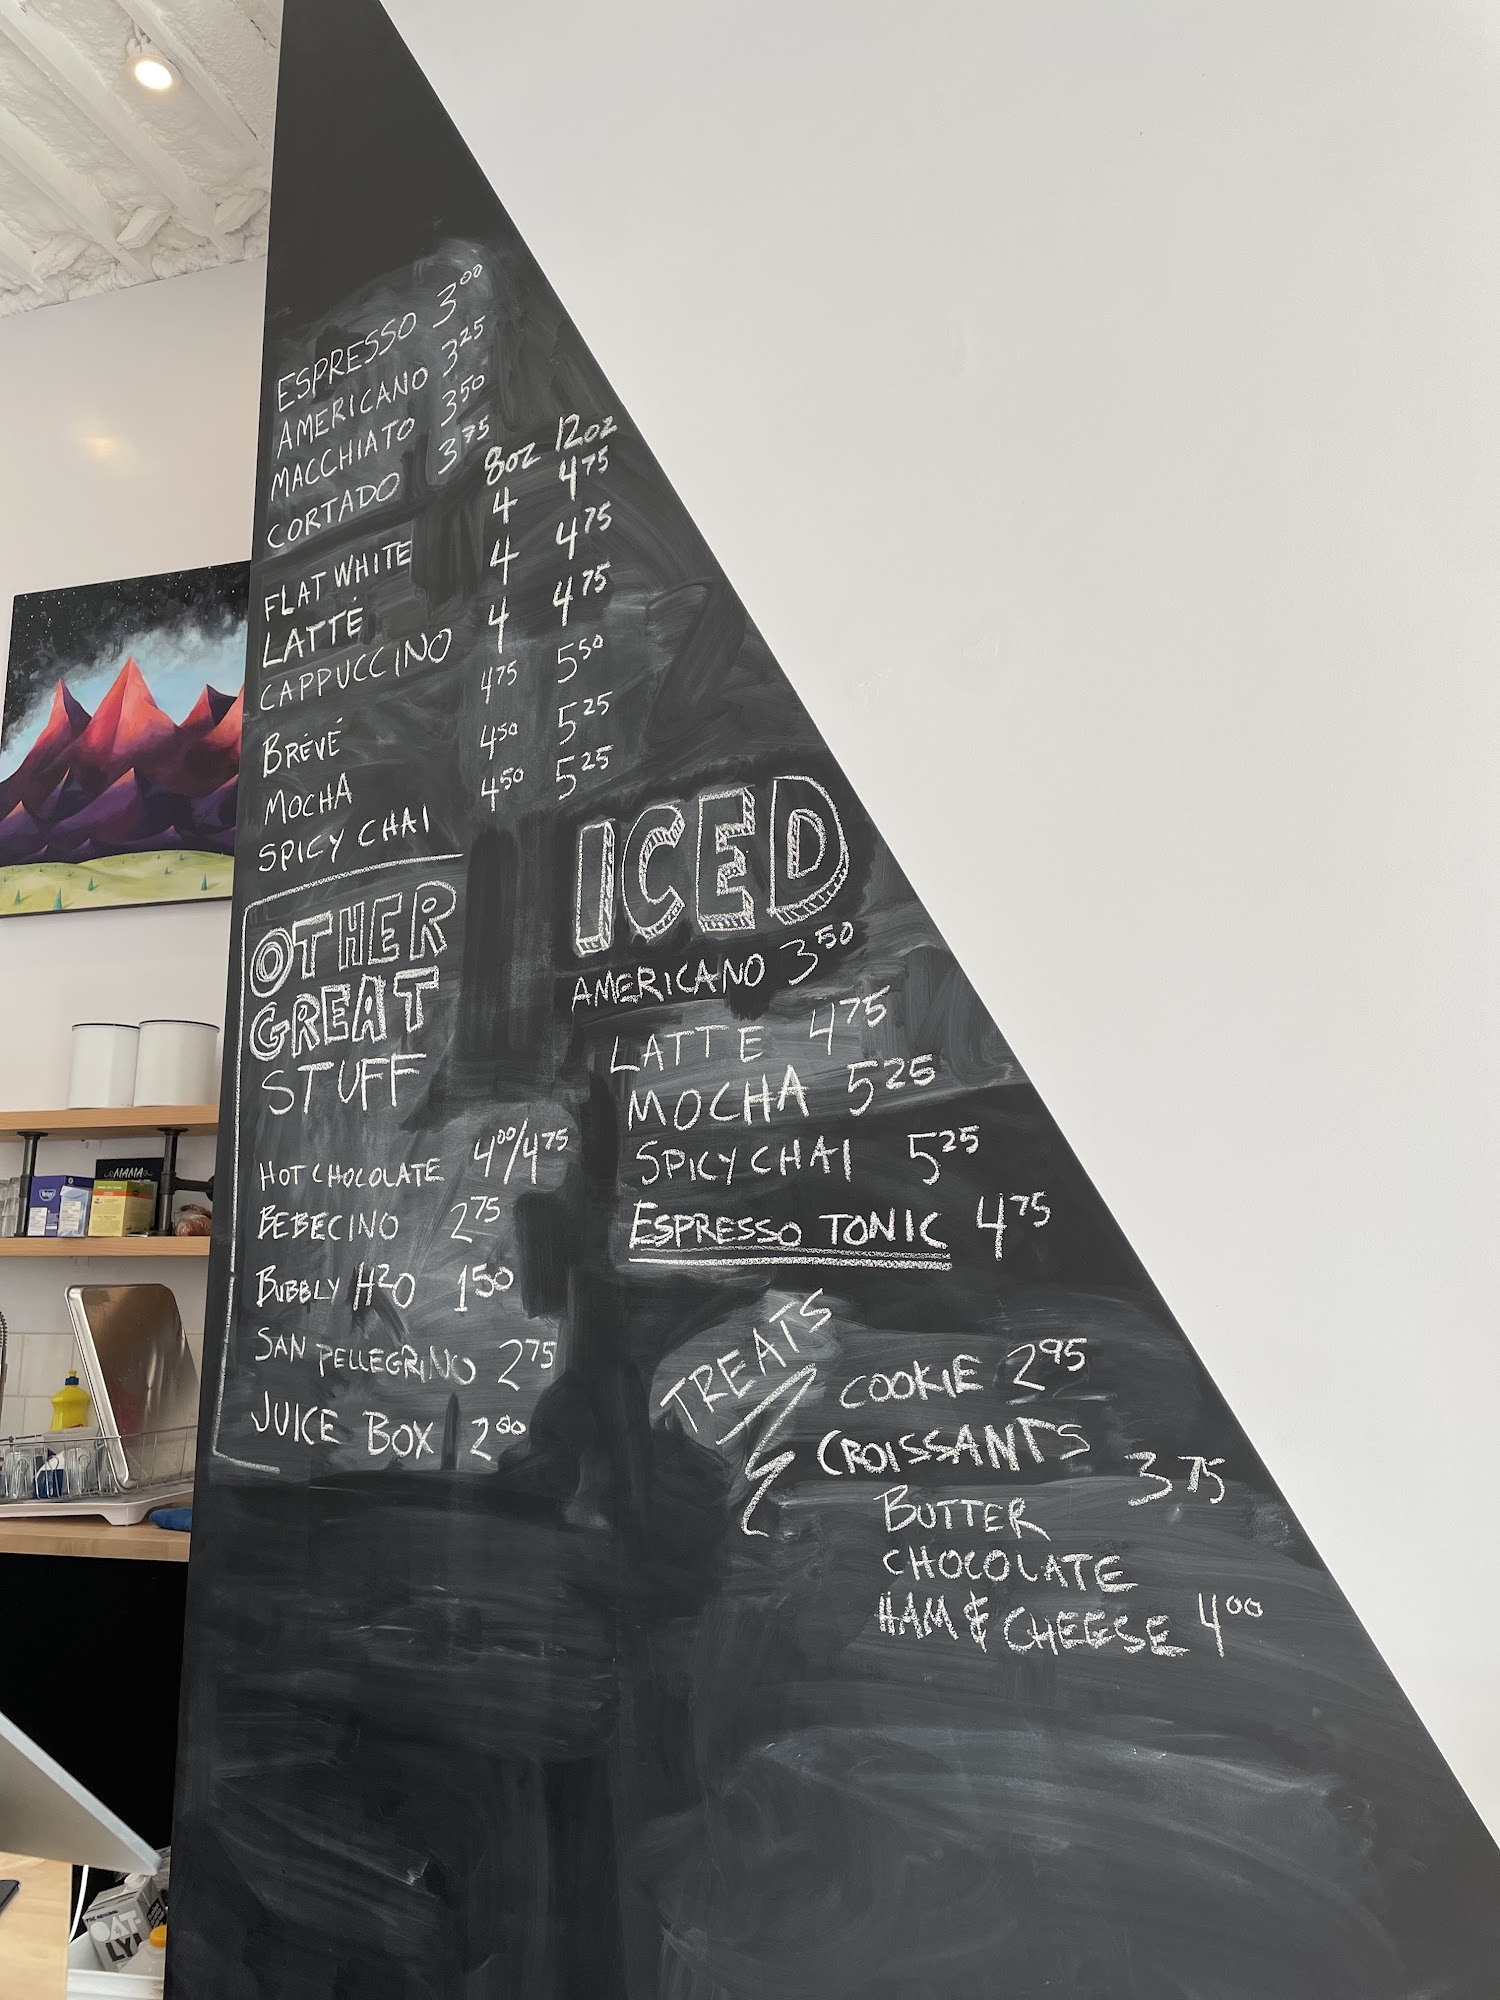 ESPRESSO 3.00
AMERICANO 3.25
MACCHIATO 3.50
CORTADO 3.75
8oz 12oz
FLAT WHITE 4 4.75
LATTÉ 4 4.75
CAPPUCCINO 4 4.75
BRÉVÉ 4.75 5.50
MOCHA 4.50 5.25
SPICY CHAI 4.50 5.25
OTHER
GREAT
STUFF
HOT CHOCOLATE 4.00/4.75
BEBECINO 2.75
BUBBLY H2O 1.50
SAN PELLEGRINO 2.75
JUICE BOX 2.00
ICED
AMERICANO 3.50
LATTE 4.75
MOCHA 5.25
SPICY CHAI 5.25
ESPRESSO TONIC 4.75
TREATS
COOKIE 2.95
CROISSANTS 3.75
BUTTER
CHOCOLATE
HAM & CHEESE 4.00
MAMA
OAT-
LY!